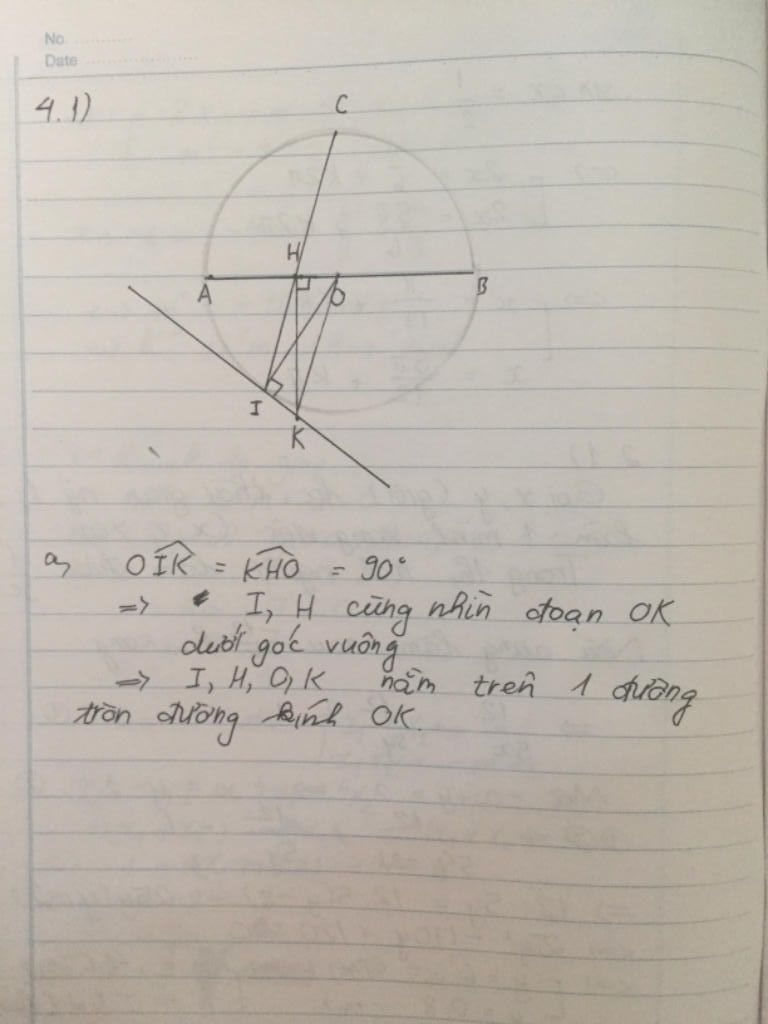 No. ............
Date ........................
4.1)
C
H
A
O
B
I
K
a, OIK = KHO = 90°
=> I, H cùng nhìn đoạn OK
dưới góc vuông
=> I, H, O, K nằm trên 1 đường
tròn đường kính OK.